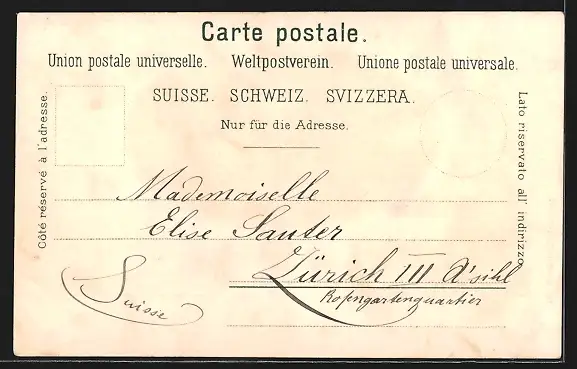 Carte postale.
Union postale universelle. Weltpostverein. Unione postale universale.
SUISSE. SCHWEIZ. SVIZZERA.
Nur für die Adresse.
Côté réservé à l'adresse.
Lato riservato all' indirizzo
Mademoiselle
Elise Sauter
Zürich III A'sihl
Rosengartenquartier
Suisse